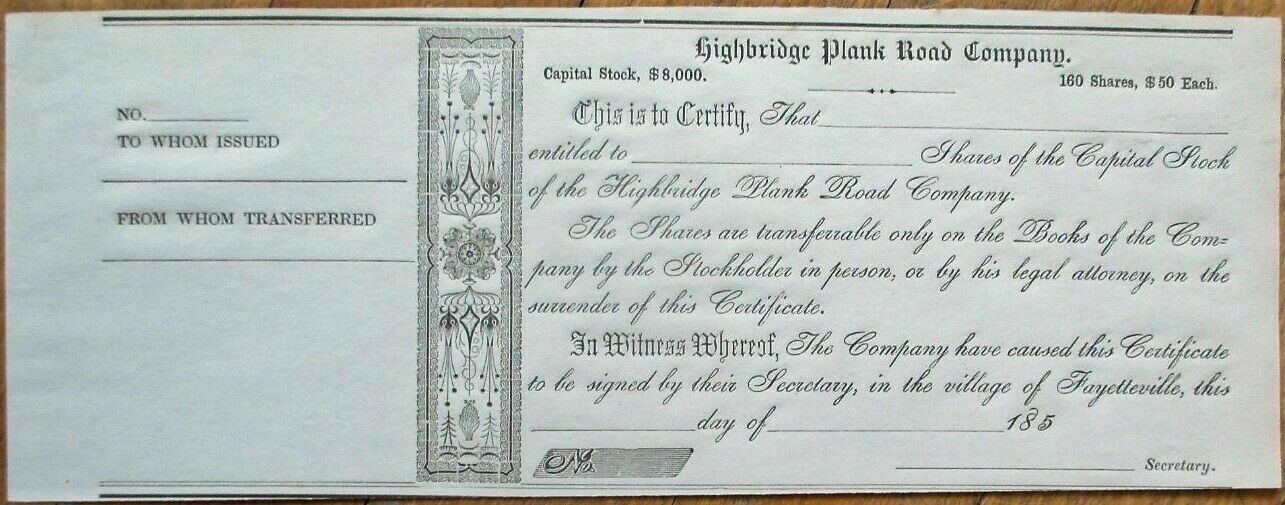 NO.
TO WHOM ISSUED
FROM WHOM TRANSFERRED
Highbridge Plank Road Company.
Capital Stock, $8,000.
160 Shares, $50 Each.
This is to Certify, That
entitled to Shares of the Capital Stock
of the Highbridge Plank Road Company.
The Shares are transferrable only on the Books of the Com=
pany by the Stockholder in person, or by his legal attorney, on the
surrender of this Certificate.
In Witness Whereof, The Company have caused this Certificate
to be signed by their Secretary, in the village of Fayetteville, this
day of 185
No.
Secretary.